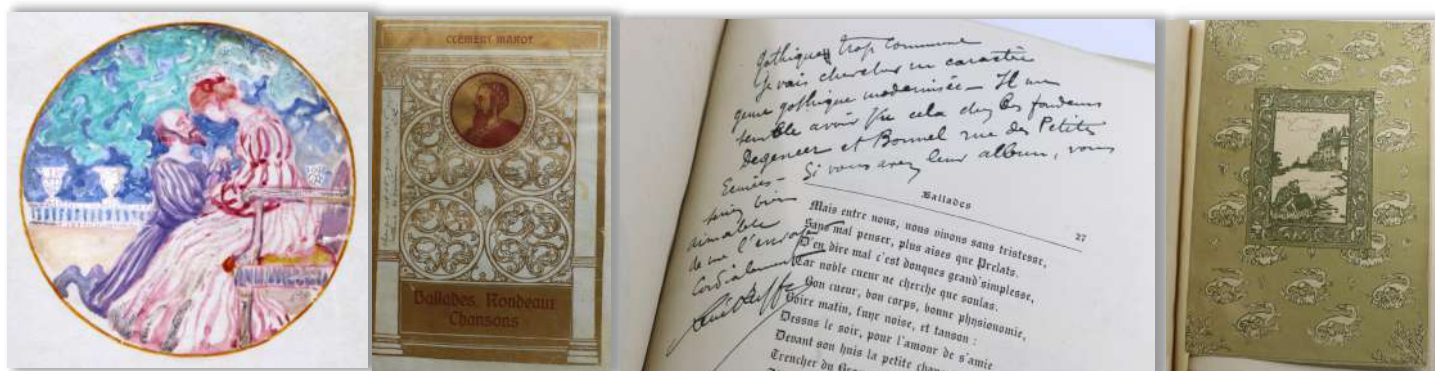 CLÉMENT MAROT
Ballades, Rondeaux
Chansons
Gothique trop commune
Je vais chercher un caractère
genre gothique modernisée – Il me
semble avoir vu cela chez les fondeurs
Degeneer et Bonnel rue des Petites
Ecuries – Si vous avez leur album, vous
bien
aimable
de me l'envoyer
Cordialement
Ballades
27
Mais entre nous, nous vivons sans tristesse,
Sans mal penser, plus aises que Prelats.
D'en dire mal c'est donques grand' simplesse,
Car noble cueur ne cherche que soulas.
Bon cueur, bon corps, bonne physionomie,
Boire matin, fuyr noise, et tanson :
Dessus le soir, pour l'amour de s'amie
Devant son huis la petite
Trencher du